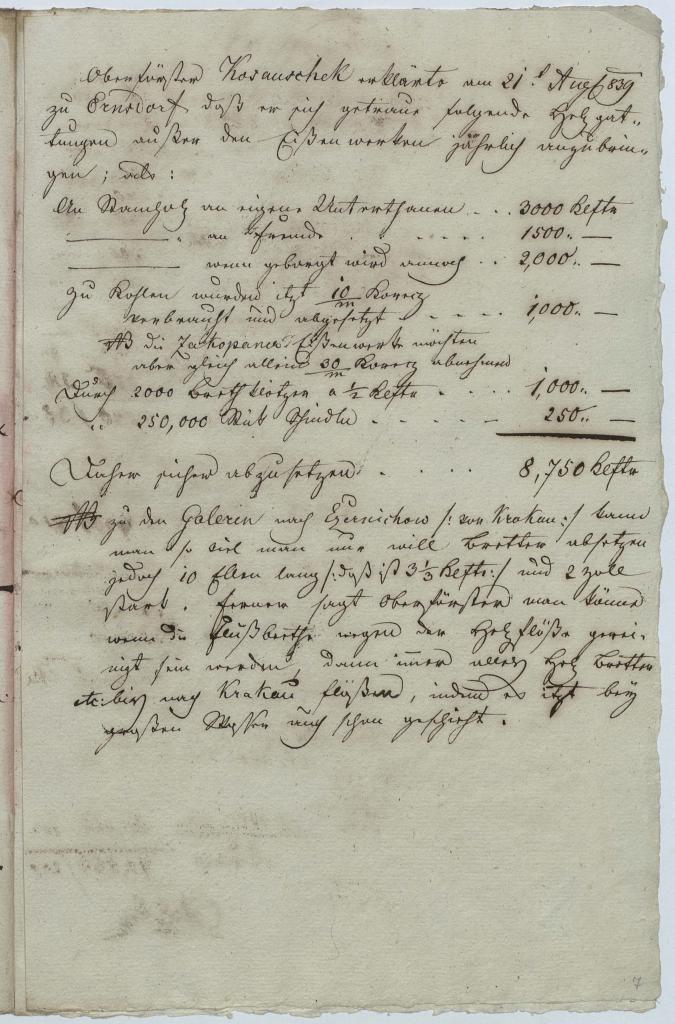 Oberförster Kosauschek erklärte am 21t Aug 839
zu Ernsdorf daß er sich getraue folgende Holzgat-
tungen außer den Eisenwerken jährlich anzubrin-
gen; als:
An Stamholz an eigene Unterthanen - - . 3000 Kftr
——— " an Fremde . . - - - - 1500 " —
——— wenn geborgt wird annoch . . 2,000 " —
Zu Kohlen wurden itzt 10/m Korecz
verbraucht und abgesetzt - - - - - 1,000 " —
NB die Zakopaner Eisenwerke möchten
aber gleich allein 30/m Korecz abnehmen
Durch 2000 Brettklötzer a ½ Kftr . . . . 1,000 " —
" 250,000 Stük Schindln - - - - - - 250 " —
Daher sicher abzusetzen . . . . . 8,750 Kftr
NB zu den Galeren nach Czernichow /: vor Krakau :/ kann
man so viel man nur will Bretter absetzen
jedoch 10 Ellen lang /: daß ist 3 1/3 Kftr :/ und 2 Zoll
stark. Ferner sagt Oberförster man könne
wenn die Flußbette wegen der Holzflöße gerei-
nigt sein werden, dann immer alles Holz Bretter
etc: bis nach Krakau flößen, indem es itzt bey
großen Wasser auch schon geschieht.
7